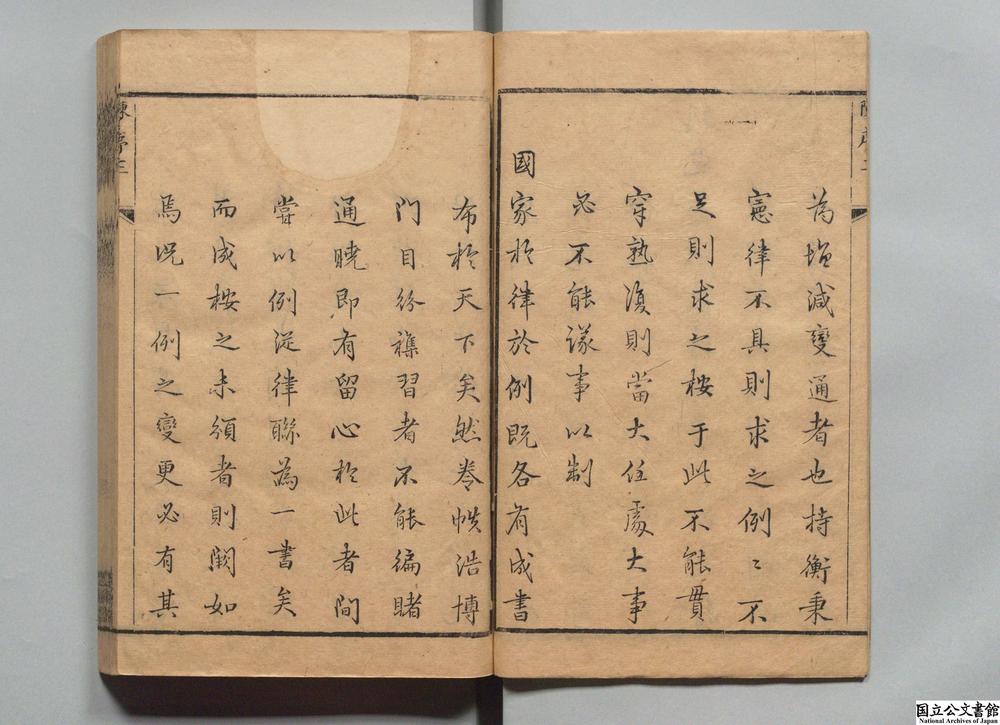 為增減變通者也持衡秉
憲律不具則求之例〻不
足則求之桉于此不能貫
穿熟復則當大任處大事
必不能議事以制
國家於律於例既各有成書
布於天下矣然卷帙浩博
門目紛襍習者不能編睹
通曉即有留心於此者間
嘗以例從律聯為一書矣
而成桉之未頒者則闕如
焉況一例之變更必有其
国立公文書館
National Archives of Japan